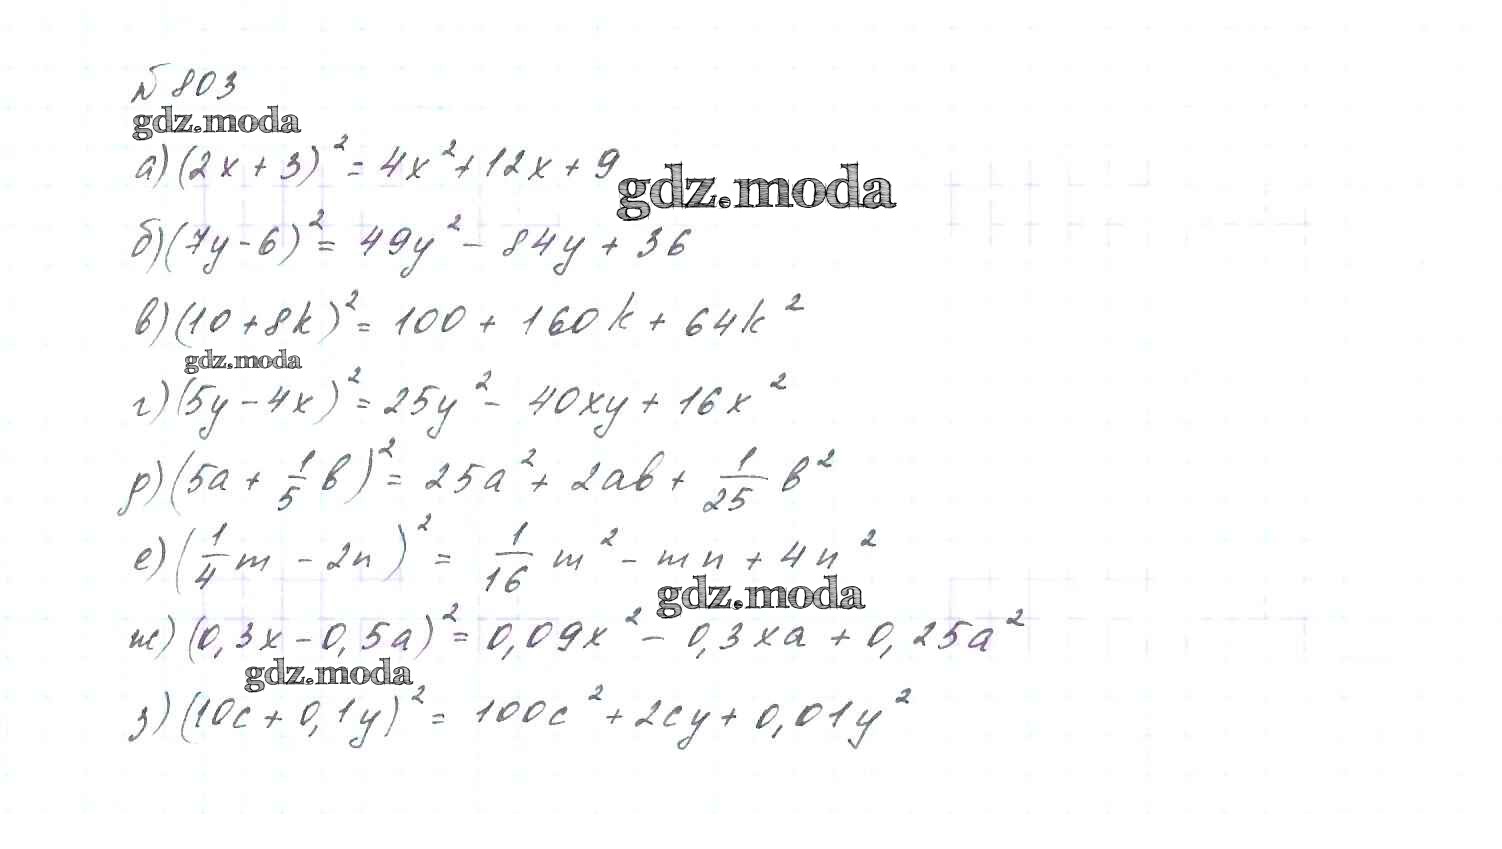 № 803
gdz.moda
а) (2x + 3)² = 4x² + 12x + 9
gdz.moda
б) (7y - 6)² = 49y² - 84y + 36
в) (10 + 8k)² = 100 + 160k + 64k²
gdz.moda
г) (5y - 4x)² = 25y² - 40xy + 16x²
д) (5a + 1/5 b)² = 25a² + 2ab + 1/25 b²
е) (1/4 m - 2n)² = 1/16 m² - mn + 4n²
gdz.moda
ж) (0,3x - 0,5a)² = 0,09x² - 0,3xa + 0,25a²
gdz.moda
з) (10c + 0,1y)² = 100c² + 2cy + 0,01y²